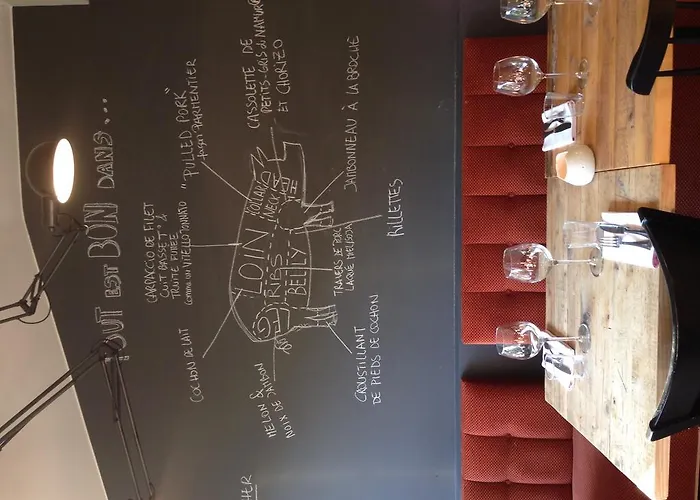 TOUT EST BON DANS...
"PULLED PORK"
façon PARMENTIER
CASSOLETTE DE
PETITS-GRIS DE NAMUR
ET CHORIZO
CARPACCIO DE FILET
CUIT BASSE T° &
TRUITE FUMÉE
comme un VITELLO TONNATO
JAMBONNEAU À LA BROCHE
COLLAR
NECK
LOIN
RIBS
BELLY
COCHON DE LAIT
TRAVERS DE PORC
LAQUÉ
RILLETTES
MELON &
NOIX DE JAMBON
CROUSTILLANT
DE PIEDS DE COCHON
HER